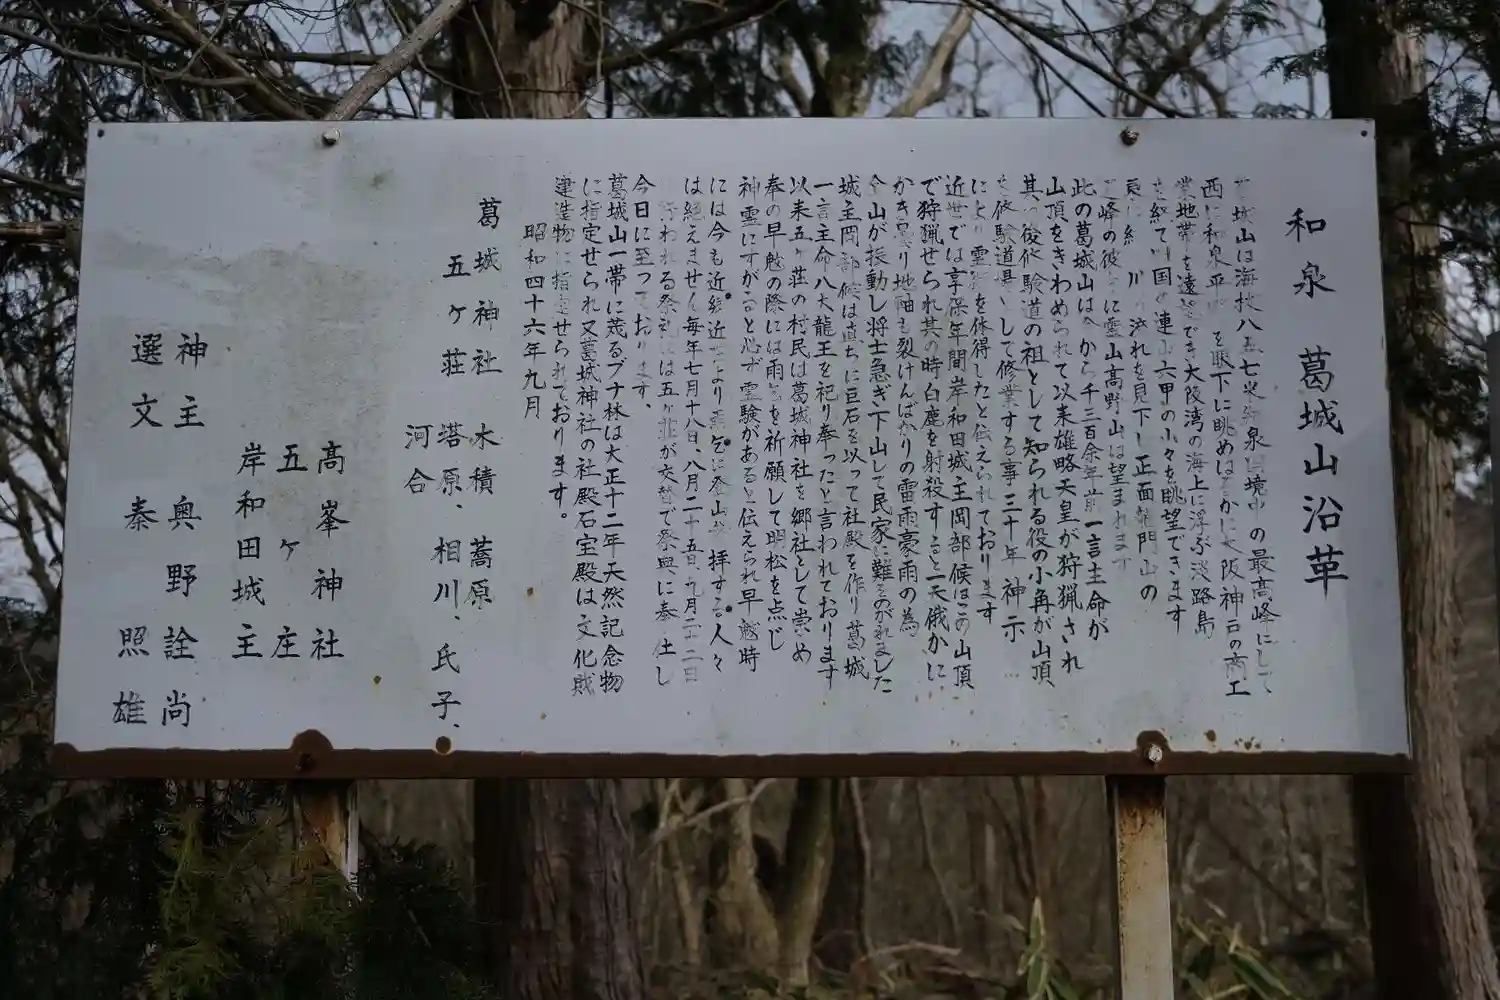 和泉 葛城山沿革
城山は海抜八五七米 泉 境 の最高峰にして
西 和泉平 を眼下に眺めは かに大阪神戸の商工
地帯を遠望でき大阪湾の海上に浮ぶ淡路島
を経て四国 連山六甲の山々を眺望できます
東に 川 流れを見下し正面龍門山の
峰の彼 に霊山高野山は望まれます
此の葛城山は今から千三百余年前一言主命が
山頂をきわめられて以来雄略天皇が狩猟され
其 後修験道の祖として知られる役の小角が山頂
を修験道場として修業する事三十年 神示
により霊 を体得したと伝えられております
近世では享保年間岸和田城主岡部候はこの山頂
で狩猟せられ其の時白鹿を射殺すると一天俄かに
かき曇り地軸も裂けんばかりの雷雨豪雨の為
全山が振動し将士急ぎ下山して民家に難をのがれました
城主岡部候は直ちに巨石を以って社殿を作り葛城
一言主命八大龍王を祀り奉ったと言われております
以来五ヶ荘の村民は葛城神社を郷社として崇め
奉の早魃の際には雨乞を祈願して明松を点じ
神霊にすがると必ず霊験があると伝えられ早魃時
には今も近郷近 より雨乞に登山 拝する人々
は絶えません毎年七月十八日、八月二十五日、九月二十二日
行われる祭礼には五ヶ荘が交替で祭典に奉仕し
今日に至っております、
葛城山一帯に茂るブナ林は大正十二年天然記念物
に指定せられ又葛城神社の社殿石宝殿は文化財
建造物に指定せられております。
昭和四十六年九月
葛城神社 木積 蕎原
五ヶ荘 塔原、相川、氏子、
河合
高峯神社
五ヶ庄
岸和田城主
神主 奥野詮尚
選文 秦照雄